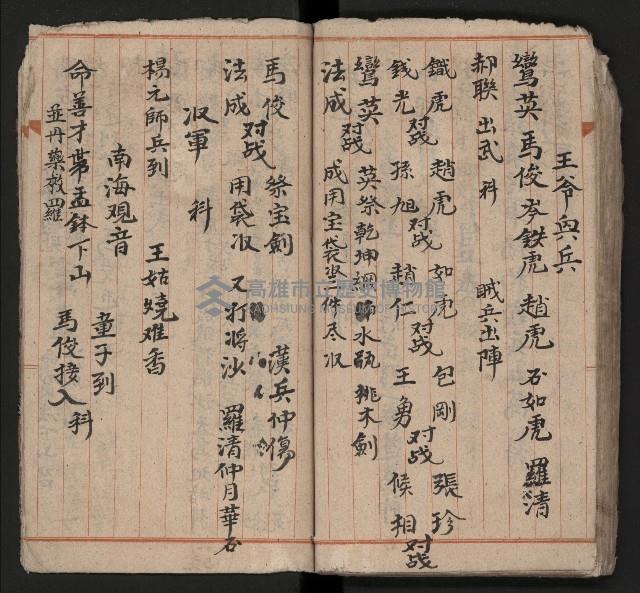 王爷與兵
鸞英 馬俊 岑鉄虎 趙虎 石如虎 羅清
郝聯 出武 科 賊兵出陣
鐵虎 对战 趙虎 对战 如虎 对战 包剛 对战 張珍 对战
錢光 孫旭 趙仁 王勇 候相
鸞英 对战 英祭乾坤 水瓶 桃木劍
法成 成用宝袋 件尽収
馬俊 对战 祭宝劍 漢兵仲傷
法成 用袋収 又打將沙 羅清仲月華石
収軍 科
楊元帥兵到 王姑燒难香
南海观音 童子到
命善才帶盂鉢下山 馬俊接入科
並丹藥救羅
高雄市立歷史博物館
KAOHSIUNG MUSEUM OF HISTORY